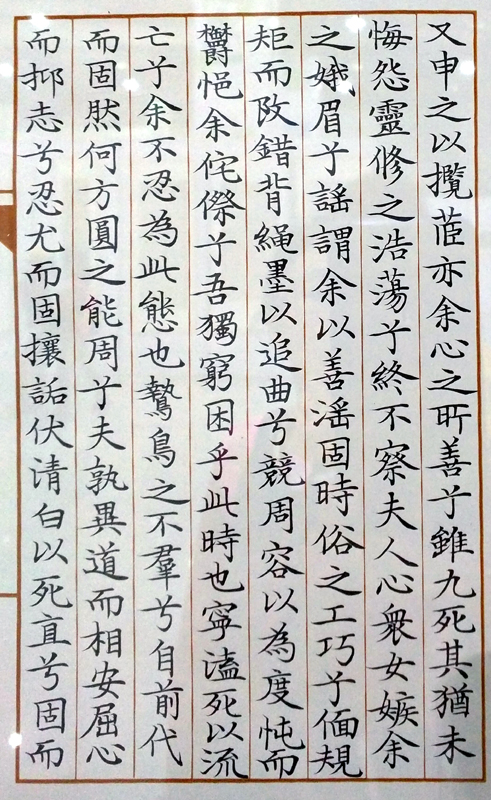 又申之以攬茝亦余心之所善兮雖九死其猶未
悔怨靈修之浩蕩兮終不察夫人心衆女嫉余
之娥眉兮謠謂余以善滛固時俗之工巧兮偭規
矩而改錯背繩墨以追曲兮競周容以為度忳而
欝悒余侘傺兮吾獨窮困乎此時也寧溘死以流
亡兮余不忍為此態也鷙鳥之不羣兮自前代
而固然何方圓之能周兮夫孰異道而相安屈心
而抑志兮忍尤而固攘詬伏清白以死直兮固而